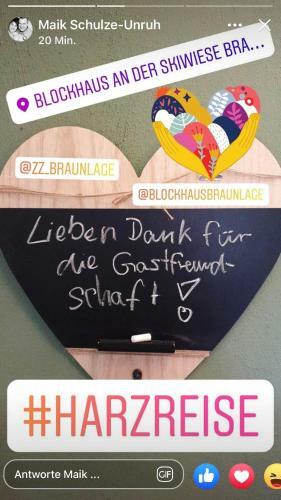 Maik Schulze-Unruh
20 Min.
BLOCKHAUS AN DER SKIWIESE BRA...
@ZZ_BRAUNLAGE
@BLOCKHAUSBRAUNLAGE
Lieben Dank für
die Gastfreund-
schaft!
#HARZREISE
Antworte Maik ...
GIF